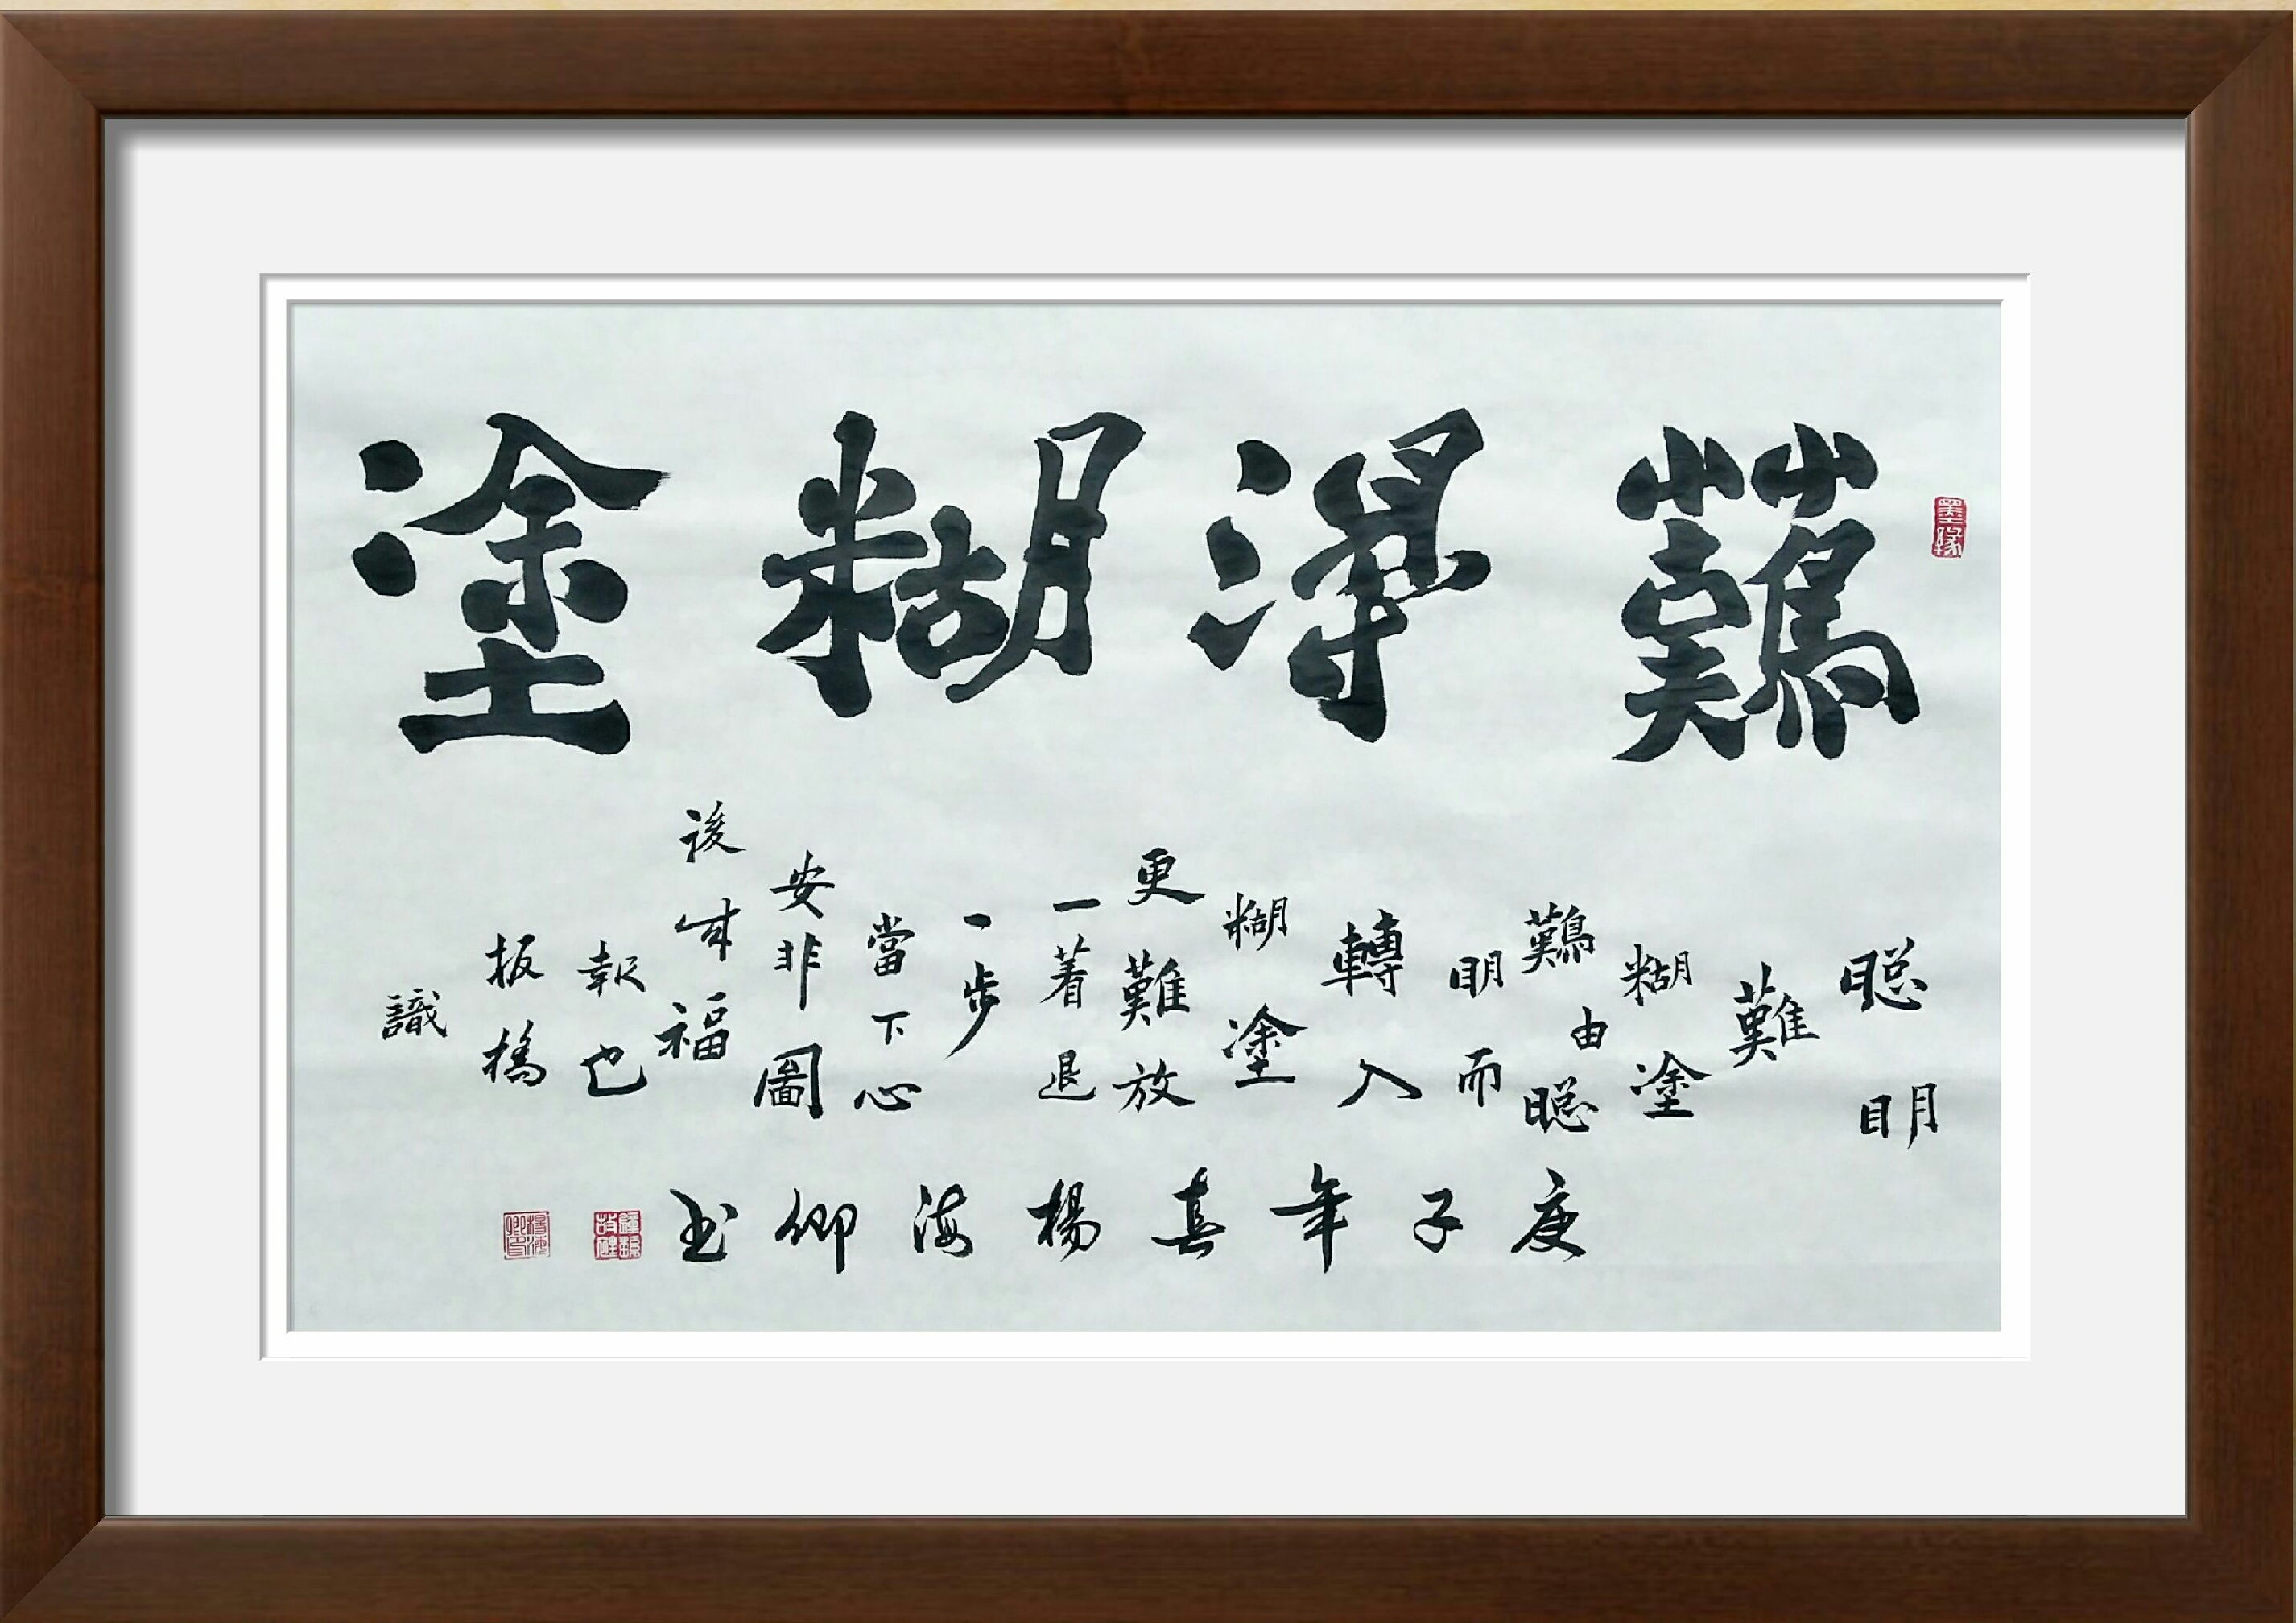 難得糊塗
墨缘
聪明
難
糊塗
難由聪
明而
轉入
糊塗
更難放
一着退
一步
當下心
安非圖
後来福
報也
板橋
識
庚子年春楊海卿书